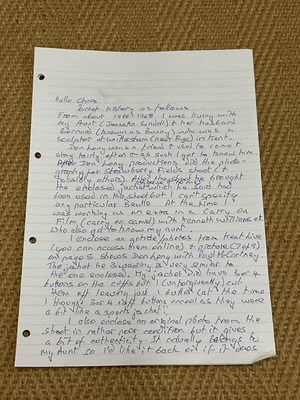 Hello Chris
Brief history as follows
From about 1966-1968 I was living with
my Aunt (     Sendall) & her husband
Bernard (known as Bunny) who was a
sculptor at Wittersham (near Rye) in Kent.
Don Long was a friend & used to come &
stay fairly often & as such I got to know him.
Don Long productions did the photo-
graphy for Strawberry Fields shoot (&
possibly others). After they shoot he brought
the enclosed jacket which he said had
been used in the shoot but I can't specify
any particular Beatle. At the time I
was working as an extra in a Carry on
Film (carry on camel) with Kenneth Williams etc
who also got to know my aunt.
I enclose an article/photos from
(you can access them online) & picture (7 of 9)
on page 5 shows Don Long with Paul McCartney.
The jacket he is wearing is very similar to
the one enclosed. My jacket did have 3 or 4
buttons on the cuffs but I (unforgivably) cut
them off leaving just 1 button (at the time
I thought 3 or 4 cuff buttons uncool as they were
a bit like a sports jacket!
I also enclose an original photo from the
shoot in rather poor condition but it gives
a bit of authenticity. It actually belongs to
my aunt so I'd like it back ok if it does